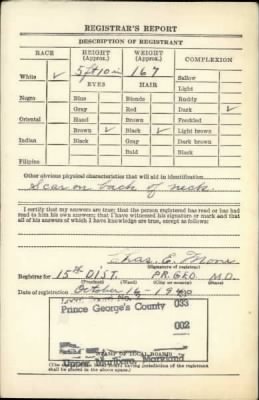 REGISTRAR'S REPORT
DESCRIPTION OF REGISTRANT
RACE HEIGHT (Approx.) WEIGHT (Approx.) COMPLEXION
White ✓ 5 ft 10 in 167 Sallow
EYES HAIR Light
Negro Blue Blonde Ruddy
Gray Red Dark ✓
Oriental Hazel Brown Freckled
Brown ✓ Black ✓ Light brown
Indian Black Gray Dark brown
Bald Black
Filipino
Other obvious physical characteristics that will aid in identification
Scar on back of neck.
I certify that my answers are true; that the person registered has read or has had
read to him his own answers; that I have witnessed his signature or mark and that
all of his answers of which I have knowledge are true, except as follows:
Chas. E.
(Signature of registrar)
Registrar for 15th DIST. PR. GEO. M.D.
(Precinct) (Ward) (City or county) (State)
Date of registration October 16-1940
Prince George's County 033
002
STAMP OF LOCAL BOARD
Upper Marlboro, Maryland
(The stamp of the Local Board having jurisdiction of the registrant
shall be placed in the above space.)